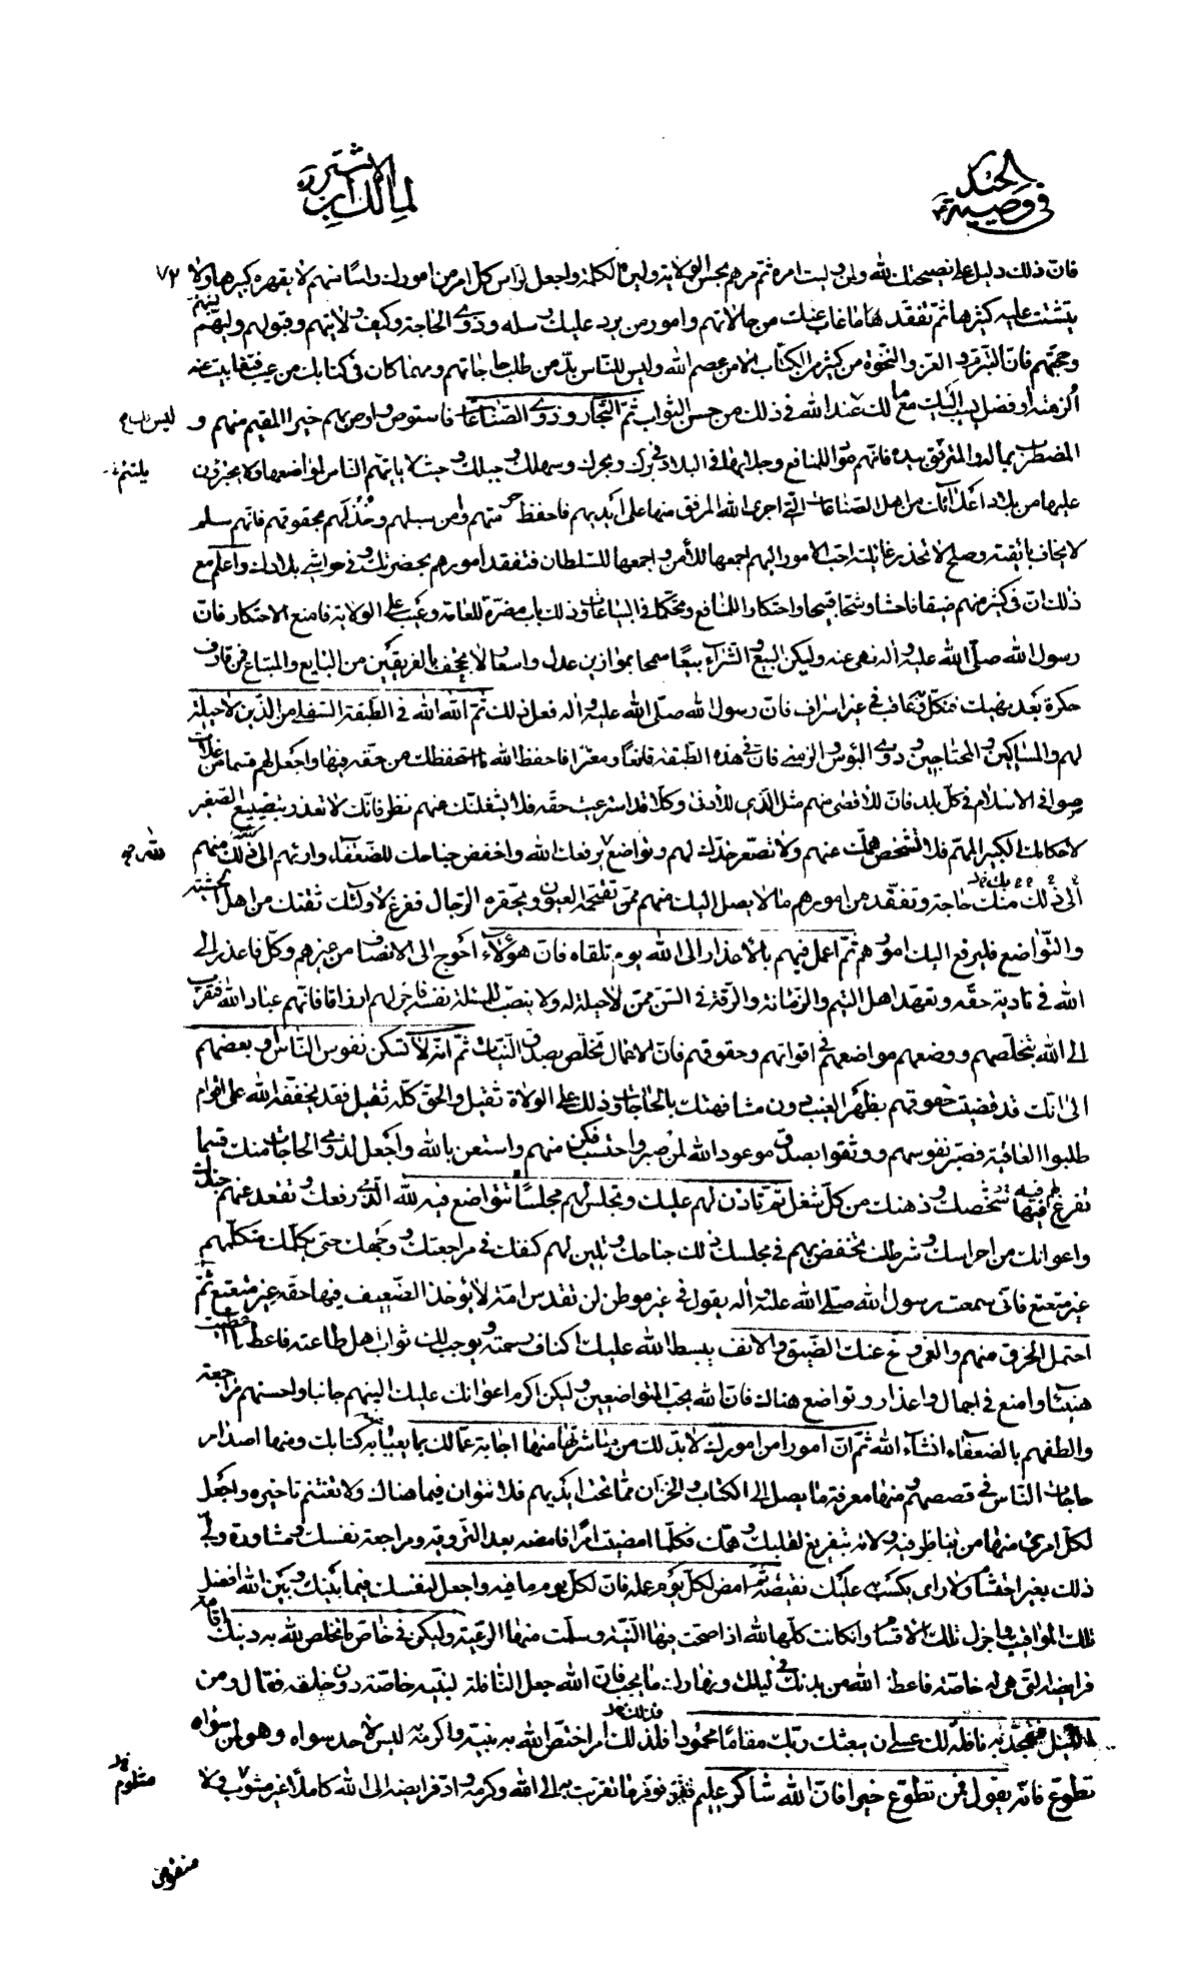 الجند
في وصيته ع
لمالك ابن
الاشتر ره
٧٢
فان ذلك دليل على نصيحتك لله ولمن وليت امره ثم مرهم بحسن الولاية ولين الكلمة واجعل لراس كل امر من امورك راسا منهم لا يقهره كبيرها ولا
يتشتت عليه كثيرها ثم تفقد ما غاب عنك من حالاتهم وامور من يرد عليك رسله وذوي الحاجة وكيف ولايتهم وقبولهم وليهم
وحجتهم فان التبرم والعز والنخوة من كثير من الكتاب الا من عصم الله وليس للناس بد من طلب حاجاتهم ومهما كان في كتابك من عيب فتغابيت عنه
الزمته او فضل نسب اليك مع ما لك عند الله في ذلك من حسن الثواب ثم التجار وذوي الصناعات فاستوص واوص بهم خيرا المقيم منهم و
المضطرب بماله والمترفق بيده فانهم مواد للمنافع وجلابها في البلاد في برك وبحرك وسهلك وجبلك وحيث لا يلتئم الناس لمواضعها ولا يجترؤن
يلتئم
عليها من بلاد اعدائك من اهل الصناعات التي اجرى الله الرفق منها على ايديهم فاحفظ حرمتهم وامن سبلهم وخذ لهم بحقوقهم فانهم سلم
لا يخاف بائقته وصلح لا تحذر غائلته احب الامور اليهم اجمعها للأمن واجمعها للسلطان فتفقد امورهم بحضرتك وفي حواشي بلادك واعلم مع
ذلك ان في كثير منهم ضيقا فاحشا وشحا قبيحا واحتكارا للمنافع وتحكما في البياعات وذلك باب مضرة للعامة وعيب على الولاة فامنع الاحتكار فان
رسول الله صلى الله عليه واله نهى عنه وليكن البيع والشراء بيعا سمحا بموازين عدل واسعار لا يجحف بالفريقين من البايع والمبتاع فمن قارف
حكرة بعد نهيك فنكل وعاقب في غير اسراف فان رسول الله صلى الله عليه واله فعل ذلك ثم الله الله في الطبقة السفلى من الذين لا حيلة
لهم والمساكين والمحتاجين وذوي البؤس والزمنى فان في هذه الطبقة قانعا ومعترا فاحفظ الله ما استحفظك من حقه فيها واجعل لهم قسما من غلات
صوافي الاسلام في كل بلد فان للأقصى منهم مثل الذي للأدنى وكلا قد استرعيت حقه فلا يشغلنك عنهم نظر فانك لا تعذر بتضييع الصغير
لاحكامك الكبير المهم فلا تشخص همك عنهم ولا تصعر خدك لهم وتواضع يرفعك الله واخفض جناحك للضعفاء واربهم الى ذلك منهم
الى ذلك منك حاجة وتفقد من امورهم ما لا يصل اليك منهم ممن تقتحمه العيون وتحقره الرجال ففرغ لأولئك ثقتك من اهل الخشية
والتواضع فليرفع اليك امورهم ثم اعمل فيهم بالأعذار الى الله يوم تلقاه فان هؤلاء احوج الى الانصاف من غيرهم وكل فاعذر الى
الله في تادية حقه وتعهد اهل اليتم والزمانة والرقة في السن ممن لا حيلة له ولا ينصب للمسئلة نفسه فاجر لهم ارزاقا فانهم عباد الله فتقرب
الى الله بتخلصهم ووضعهم مواضعهم في اقواتهم وحقوقهم فان الاعمال تخلص بصدق النيات ثم انه لا تسكن نفوس الناس او بعضهم
الى انك قد قضيت حقوقهم بظهر الغيب دون مشافهتك بالحاجات وذلك على الولاة ثقيل والحق كله ثقيل وقد يخففه الله على اقوام
طلبوا العافية فصبروا نفوسهم ووثقوا بصدق موعود الله لمن صبر واحتسب فكن منهم واستعن بالله واجعل لذوي الحاجات منك قسما
تفرغ لهم فيه شخصك وذهنك من كل شغل ثم تأذن لهم عليك وتجلس لهم مجلسا تتواضع فيه لله الذي رفعك وتقعد عنهم جندك
واعوانك من احراسك وشرطك تخفض لهم في مجلسك ذلك جناحك وتلين لهم كنفك في مراجعتك ووجهك حتى يكلمك متكلمهم
غير متعتع فاني سمعت رسول الله صلى الله عليه واله يقول في غير موطن لن تقدس امة لا يؤخذ للضعيف فيها حقه غير متعتع ثم
احتمل الخرق منهم والعي ونح عنك الضيق والانف يبسط الله عليك اكناف رحمته ويوجب لك ثواب اهل طاعته فاعط ما اعطيت
هنيئا وامنع في اجمال واعذار وتواضع هناك فان الله يحب المتواضعين وليكن اكرم اعوانك عليك الينهم جانبا واحسنهم مراجعة
والطفهم بالضعفاء انشاء الله ثم ان امورا من امورك لا بد لك من مباشرتها منها اجابة عمالك بما يعيا به كتابك ومنها اصدار
حاجات الناس في قصصهم ومنها معرفة ما يصل الى الكتاب والخزان مما تحت ايديهم فلا تتوان فيما هناك ولا تغتنم تاخيره واجعل
لكل امرئ منها من يناظر فيه ولاته بتفريغ لقلبك وهمك فكلما امضيت امرا فامضه بعد التروية ومراجعة نفسك ومشاورة ولي
ذلك بغير احتشام ولا راي يكسب عليك نقيضه ثم امض لكل يوم عمله فان لكل يوم ما فيه واجعل لنفسك فيما بينك وبين الله افضل
تلك المواقيت واجزل تلك الاقسام وان كانت كلها لله اذا صحت فيها النية وسلمت منها الرعية وليكن في خاص ما تخلص لله به دينك اقامة
فرايضه التي هي له خاصة فاعط الله من بدنك في ليلك ونهارك ما يجب فان الله جعل النافلة لنبيه خاصة دون خلقه فقال ومن
الليل فتهجد به نافلة لك عسى ان يبعثك ربك مقاما محمودا فذلك امر اختص الله به نبيه واكرمه به ليس لاحد سواه وهو لمن سواه
تطوع فانه يقول فمن تطوع خيرا فان الله شاكر عليم فوفر ما تقربت به الى الله وكرمه واد فرايضه الى الله كاملا غير مثلوب ولا
مثلوم
منقوص